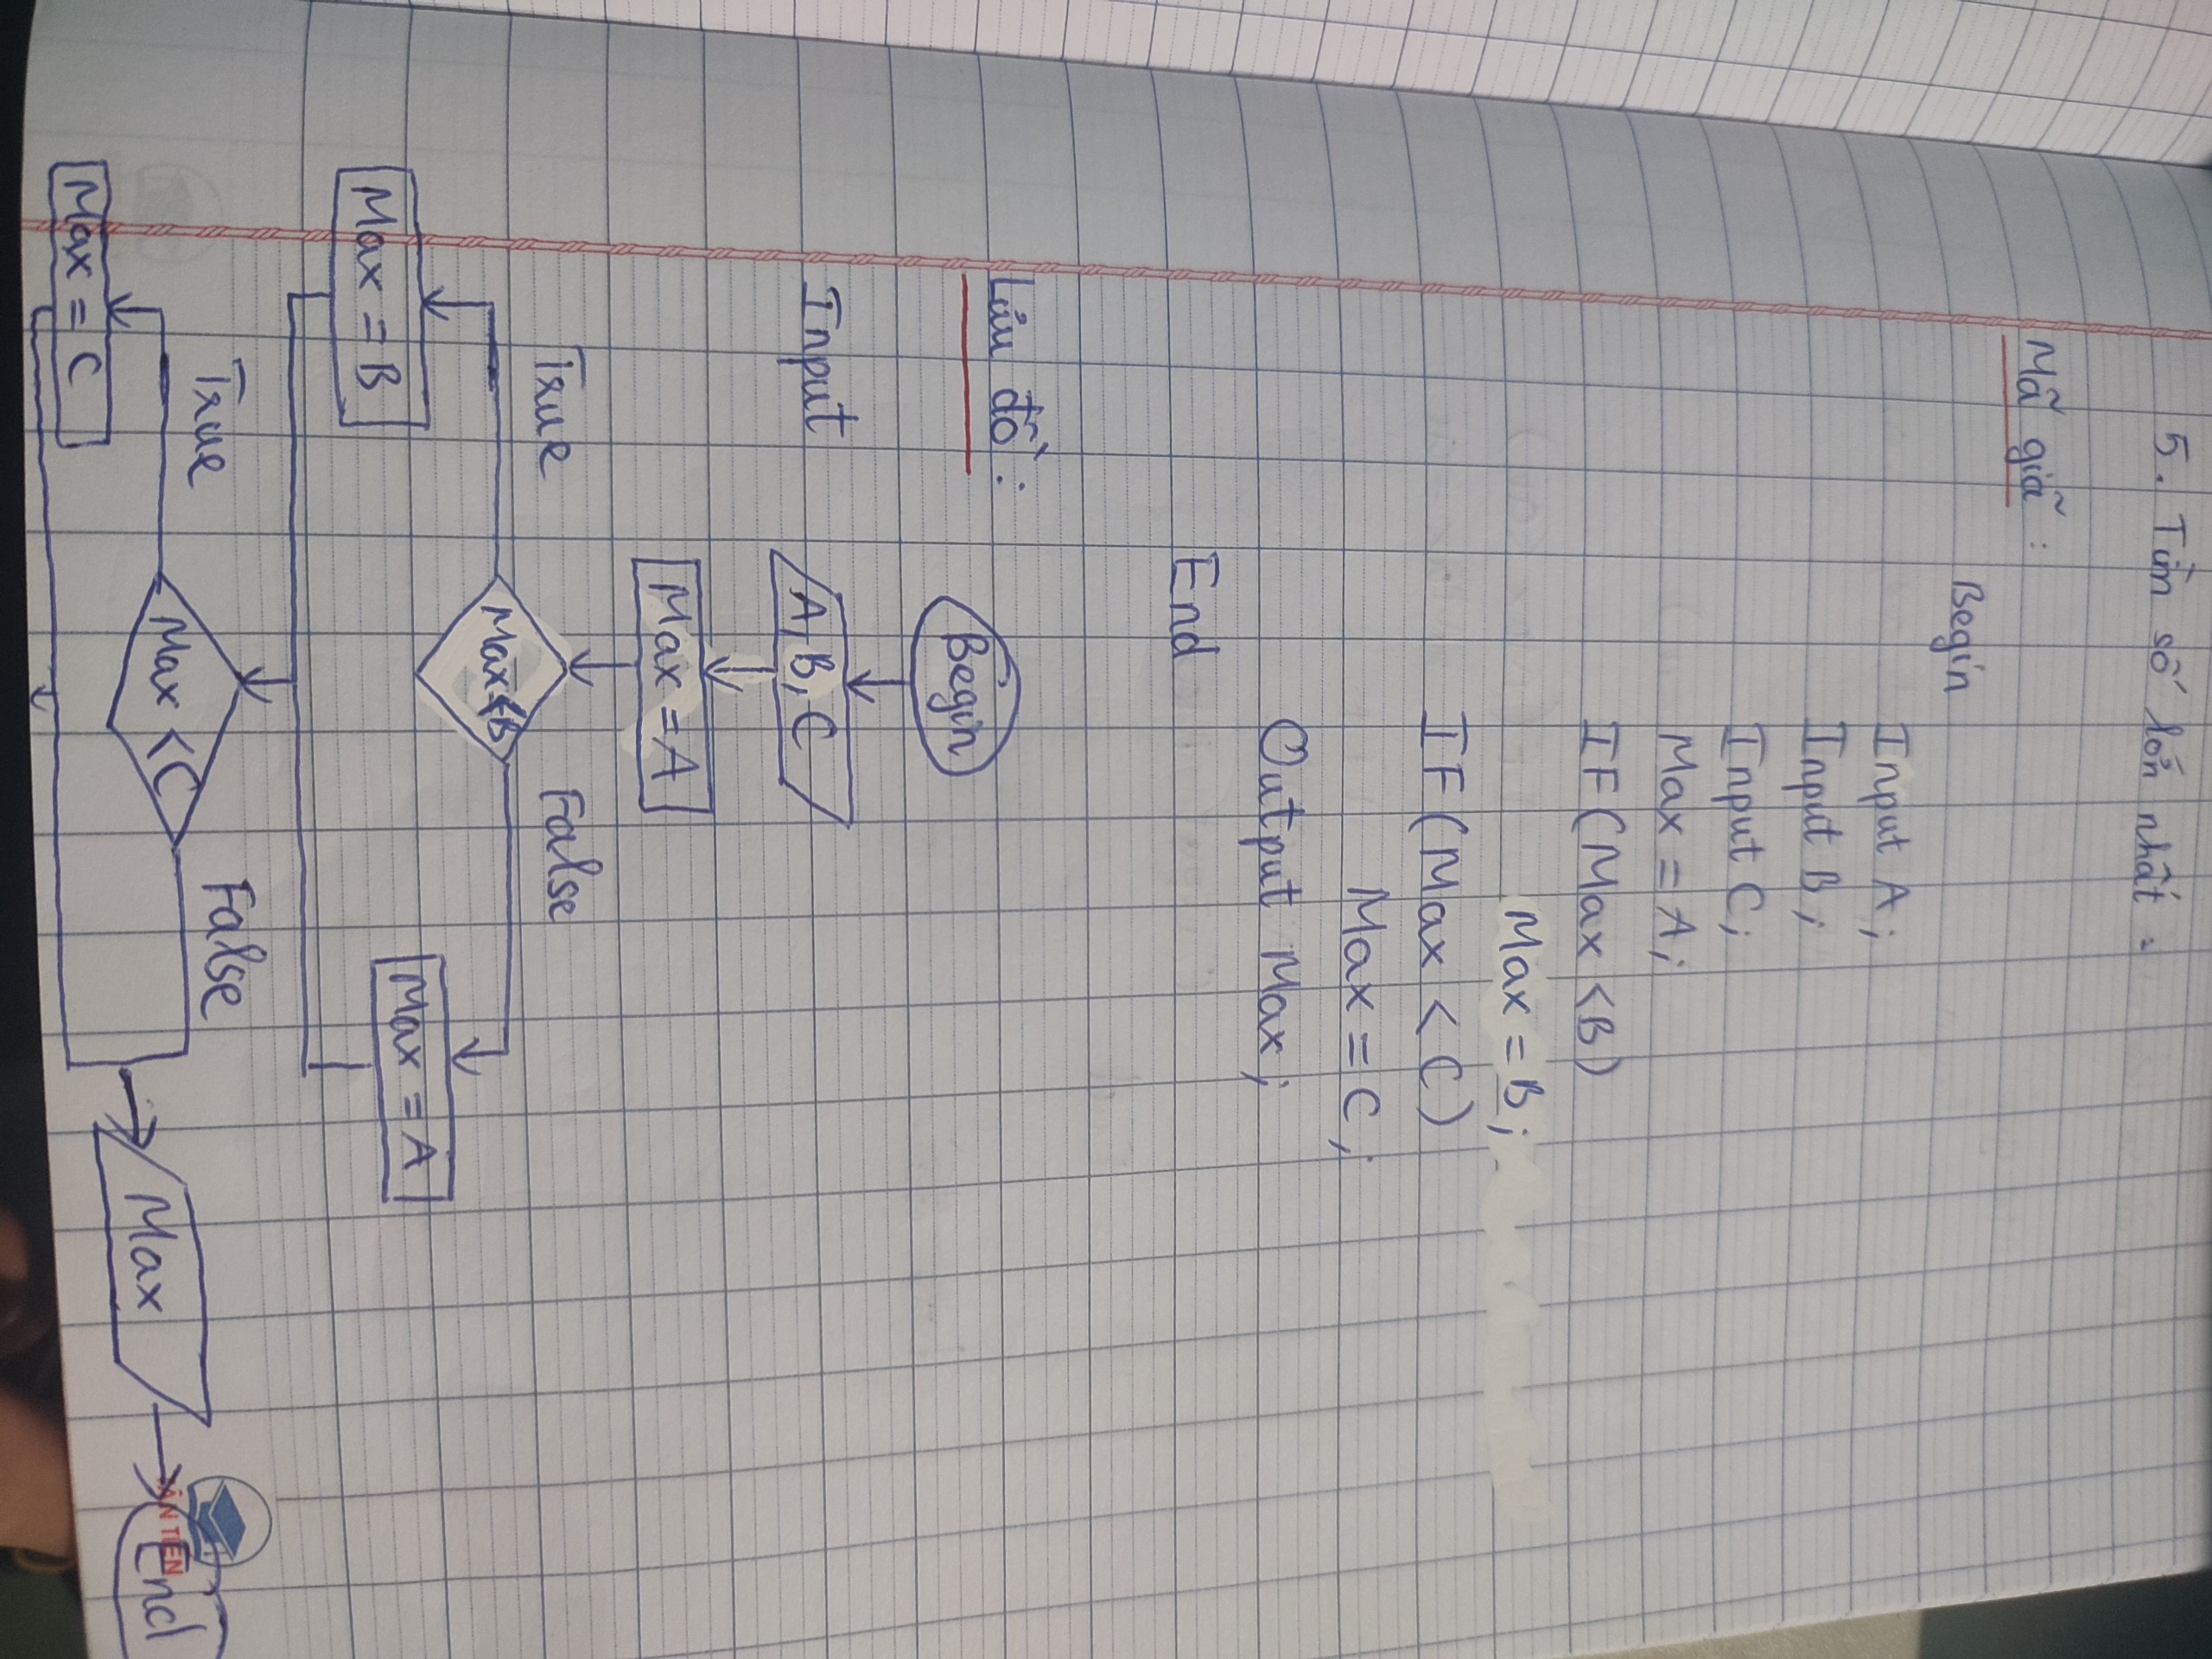 5. Tìm số lớn nhất :
Mã giả :
Begin
Input A;
Input B;
Input C;
Max = A;
IF (Max < B)
Max = B;
IF (Max < C)
Max = C;
Output Max;
End
Lưu đồ :
Begin
Input
A, B, C
Max = A
True
Max < B
False
Max = B
Max = A
True
Max < C
False
Max = C
Max
End
TIẾN